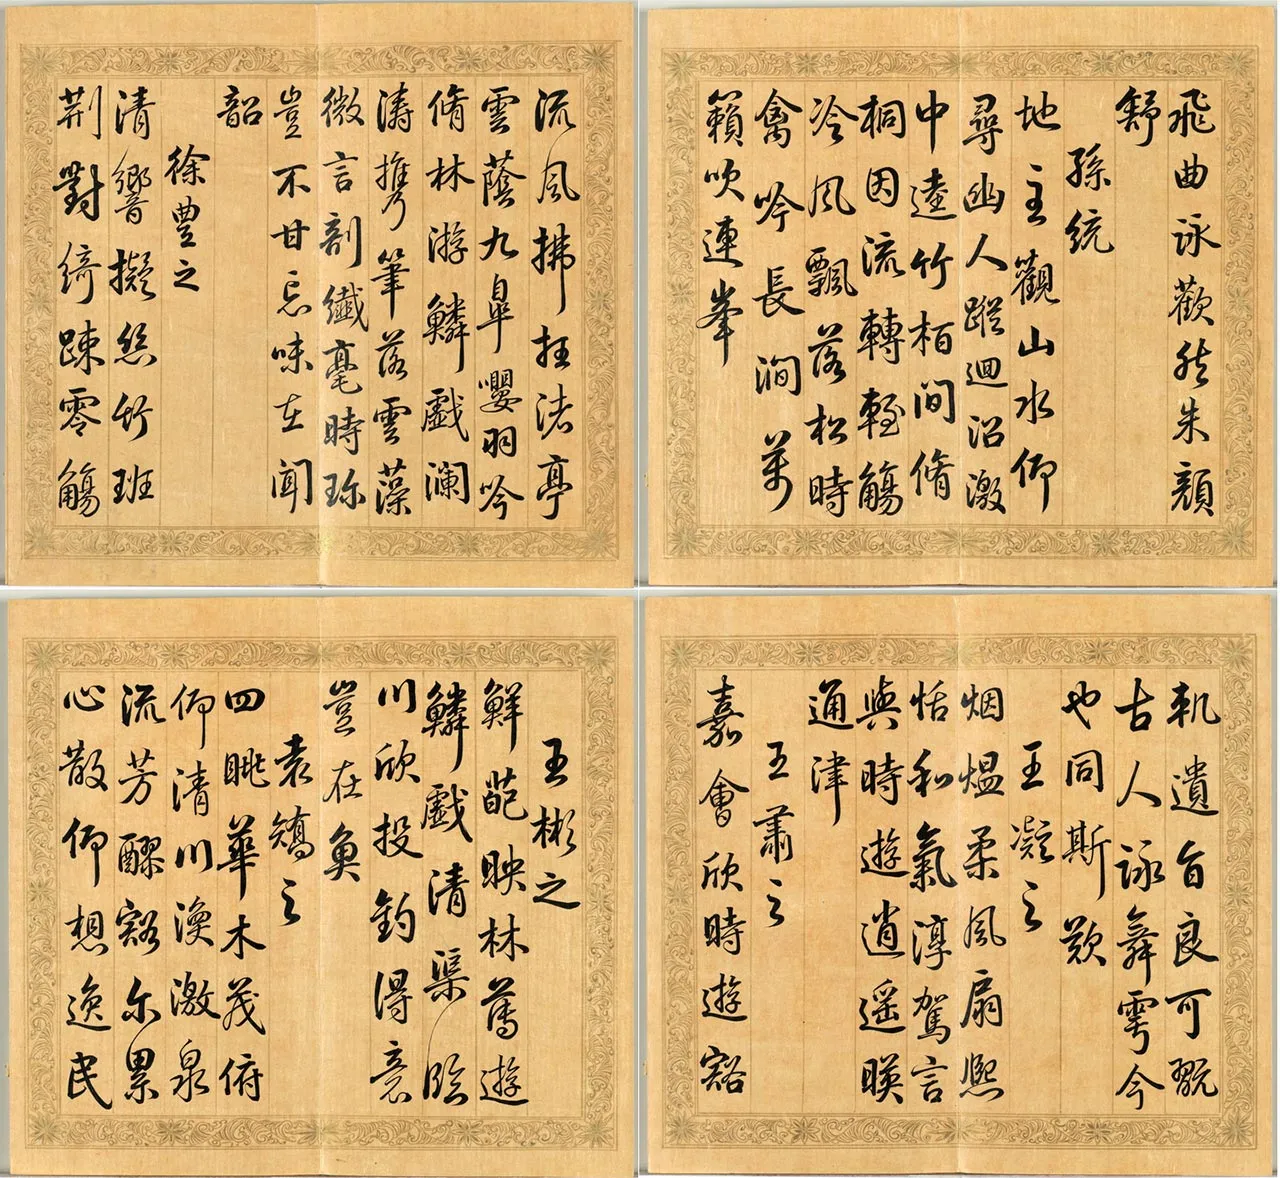 流風拂枉渚亭
雲蔭九臯嚶羽吟
脩林游鱗戲瀾
濤攜筆落雲藻
微言剖纖毫時珍
豈不甘忘味在聞
韶
徐豐之
清響擬絲竹班
荊對綺疎零觴
飛曲詠歡然朱顏
舒
孫統
地主觀山水仰
尋幽人蹤迴沼激
中逵竹栢間脩
桐因流轉輕觴
冷風飄落松時
禽吟長澗萬
籟吹連峯
王彬之
鮮葩映林薄遊
鱗戲清渠臨
川欣投釣得意
豈在魚
袁矯之
四眺華木茂俯
仰清川渙激泉
流芳醪豁尔累
心散仰想逸民
軌遺旨良可翫
古人詠舞雩今
也同斯歎
王凝之
烟熅柔風扇熙
恬和氣淳駕言
與時遊逍遙暎
通津
王肅之
嘉會欣時遊豁